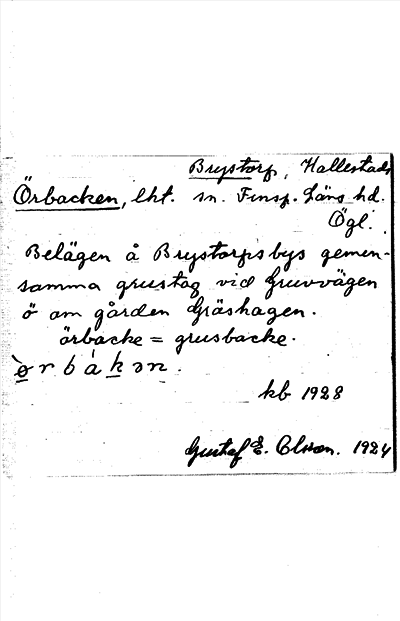 Brystorp, Hallestads
Örbacken, lht. sn. Finsp. Läns hd.
Ögl.
Belägen å Brystorps bys gemen-
samma grustag vid Gruvvägen
ö om gården Gräshagen.
örbacke = grusbacke.
kb 1928
Gustaf E. Olsson. 1924